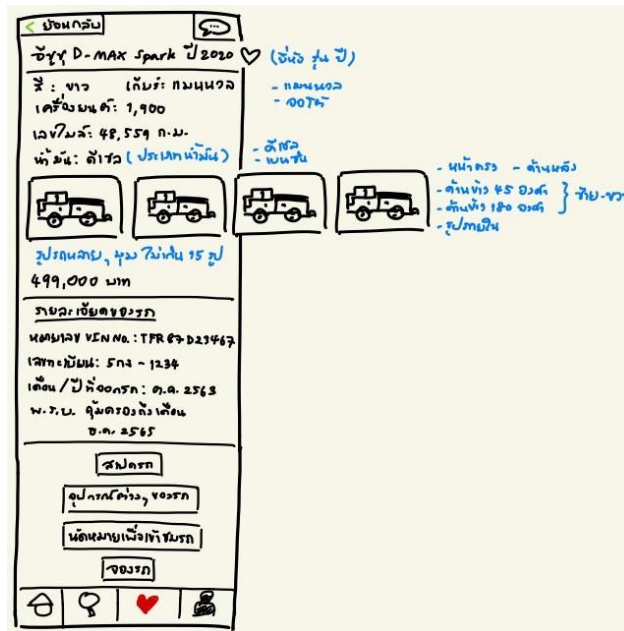 < ย้อนกลับ
อีซูซุ D-MAX Spark ปี 2020 (ยี่ห้อ รุ่น ปี)
สี: ขาว เกียร์: แมนนวล - แมนนวล
- ออโต้
เครื่องยนต์: 1,900
เลขไมล์: 48,559 ก.ม.
น้ำมัน: ดีเซล (ประเภทน้ำมัน) - ดีเซล
- เบนซิน
- หน้าตรง - ด้านหลัง
- ด้านข้าง 45 องศา } ซ้าย-ขวา
- ด้านข้าง 180 องศา
- รูปภายใน
รูปรถหลายๆ มุม ไม่เกิน 15 รูป
499,000 บาท
รายละเอียดของรถ
หมายเลข VIN No.: TFR87D23467
เลขทะเบียน: 5กง - 1234
เดือน / ปีที่ออกรถ: ต.ค. 2563
พ.ร.บ. คุ้มครองถึงเดือน
ธ.ค. 2565
สเปครถ
อุปกรณ์ต่างๆ ของรถ
นัดหมายเพื่อเข้าชมรถ
จองรถ